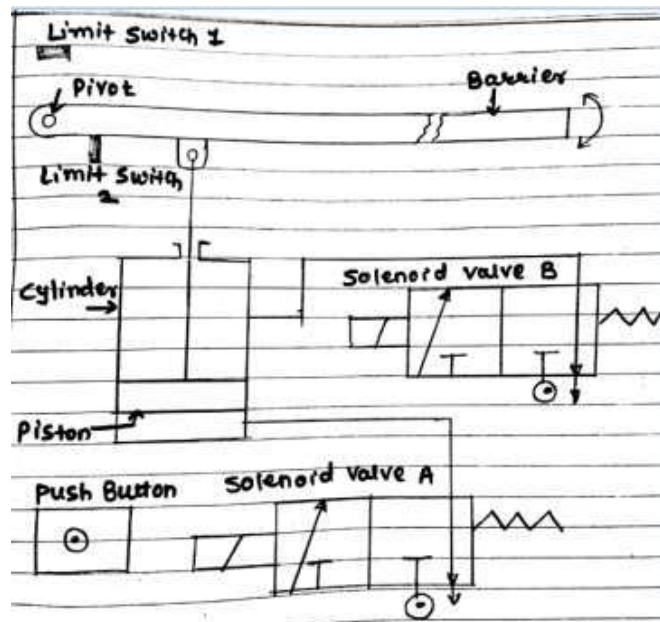 Limit Switch 1
Pivot
Barrier
Limit Switch
2
Cylinder
Solenoid valve B
Piston
Push Button
Solenoid valve A